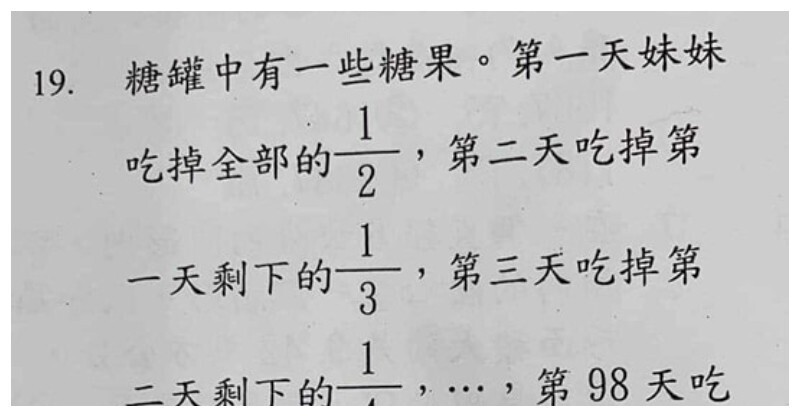 19. 糖罐中有一些糖果。第一天妹妹
吃掉全部的1/2，第二天吃掉第
一天剩下的1/3，第三天吃掉第
二天剩下的1/4，…，第 98 天吃